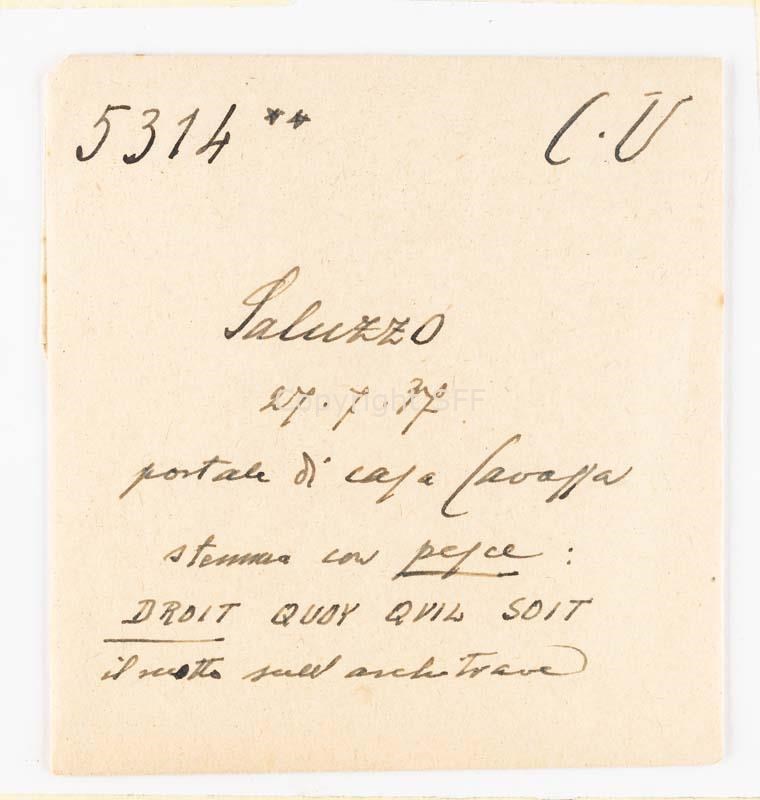 5314** C.U
Saluzzo
27.7.37
portale di casa Cavassa
stemma con pesce :
DROIT QUOY QVIL SOIT
il motto sull'architrave